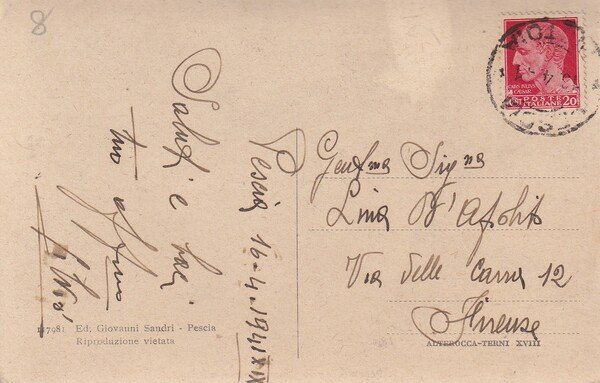 8
Saluti e baci
tuo aff.mo
Pescia 16-4-1941 XIX
Gent.ma Sig.na
Lina D'A
Via delle Carra 12
Firenze
POSTE
ITALIANE 20
117981 Ed. Giovanni Sandri - Pescia
Riproduzione vietata
ALTEROCCA-TERNI XVIII